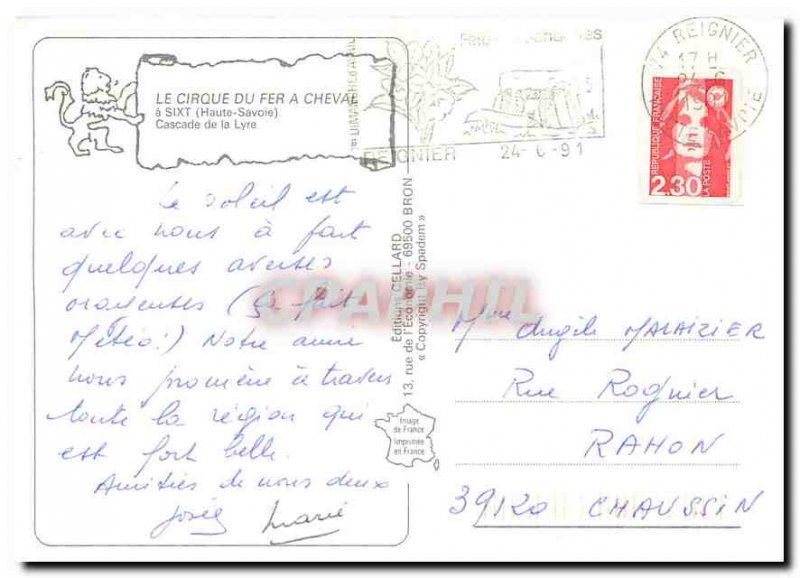 LE CIRQUE DU FER A CHEVAL
à SIXT (Haute-Savoie)
Cascade de la Lyre
Le soleil est
avec nous à part
quelques averses
orageuses (ça fait
Météo!) Notre amie
nous promène à travers
toute la région qui
est fort belle.
Amitiés de nous deux
Josée Marie
Editions CELLARD
13, rue de l'Economie - 69500 BRON
« Copyright By Spadem »
Image
de France
Imprimée
en France
CPAPHIL
REIGNIER 24-6-91
74 REIGNIER
17 H
24-6
REPUBLIQUE FRANÇAISE
2,30
LA POSTE
Mme Angèle MALAIZIER
Rue Rognier
RAHON
39120 CHAUSSIN